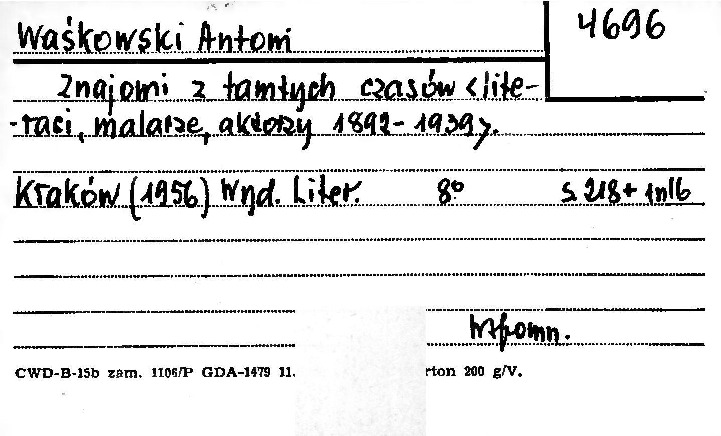 4696
Waśkowski Antoni
Znajomi z tamtych czasów <lite-
-raci, malarze, aktorzy 1892-1939>.
Kraków (1956) Wyd. Liter. 8° s. 218 + 1nlb
Wspomn.
CWD-B-15b zam. 1106/P GDA-1479 11. rton 200 g/V.